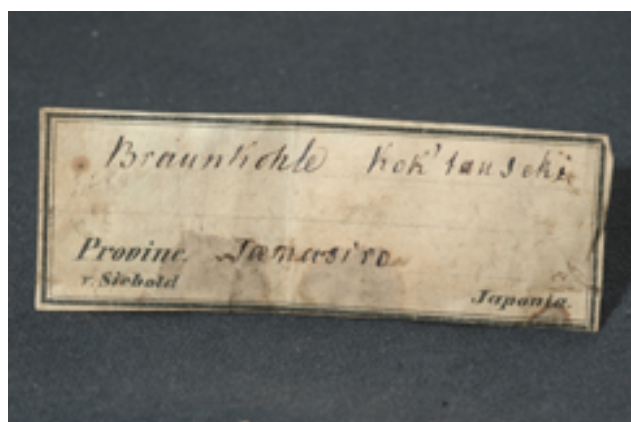 Braunkohle Kok' tan seki
Provinc. Jamasiro
v. Siebold
Japonia.